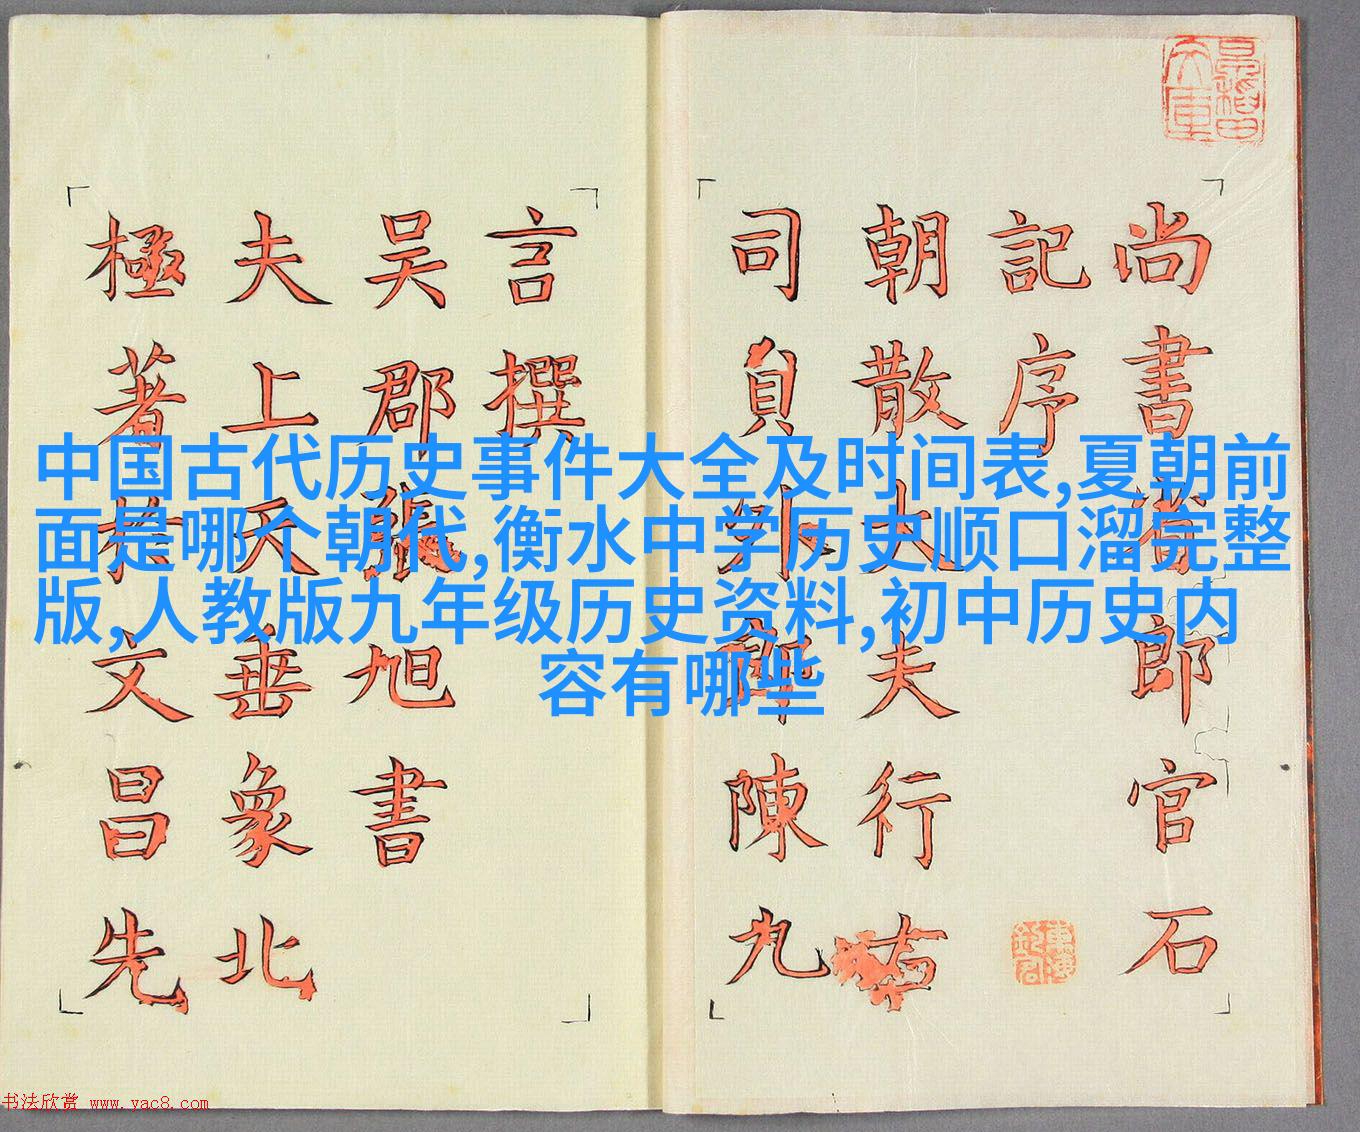 中国古代历史事件大全及时间表,夏朝前
面是哪个朝代,衡水中学历史顺口溜完整
版,人教版九年级历史资料,初中历史内
容有哪些
尚書省郎官石
記序
朝散大夫行右
司貟外郎陳九
言撰
吴郡張旭書
夫上天垂象北
極著於文昌先
书法欣赏 www.yac8.com